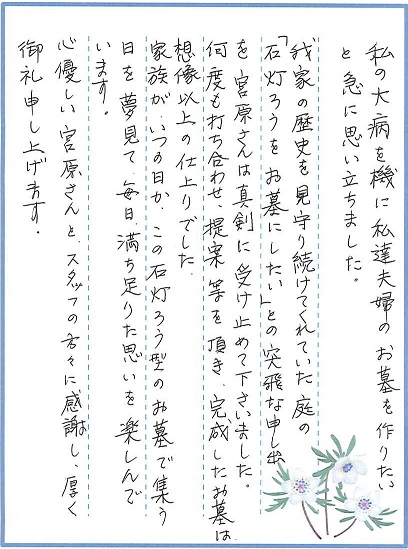 私の大病を機に私達夫婦のお墓を作りたい
と急に思い立ちました。
我家の歴史を見守り続けてくれていた庭の
「石灯ろうをお墓にしたい」との突飛な申し出
を宮原さんは真剣に受け止めて下さいました。
何度も打ち合わせ、提案等を頂き、完成したお墓は
想像以上の仕上りでした。
家族が、いつの日か、この石灯ろう型のお墓で集う
日を夢見て、毎日、満ち足りた思いを楽しんで
います。
心優しい宮原さんと、スタッフの方々に感謝し、厚く
御礼申し上げます。